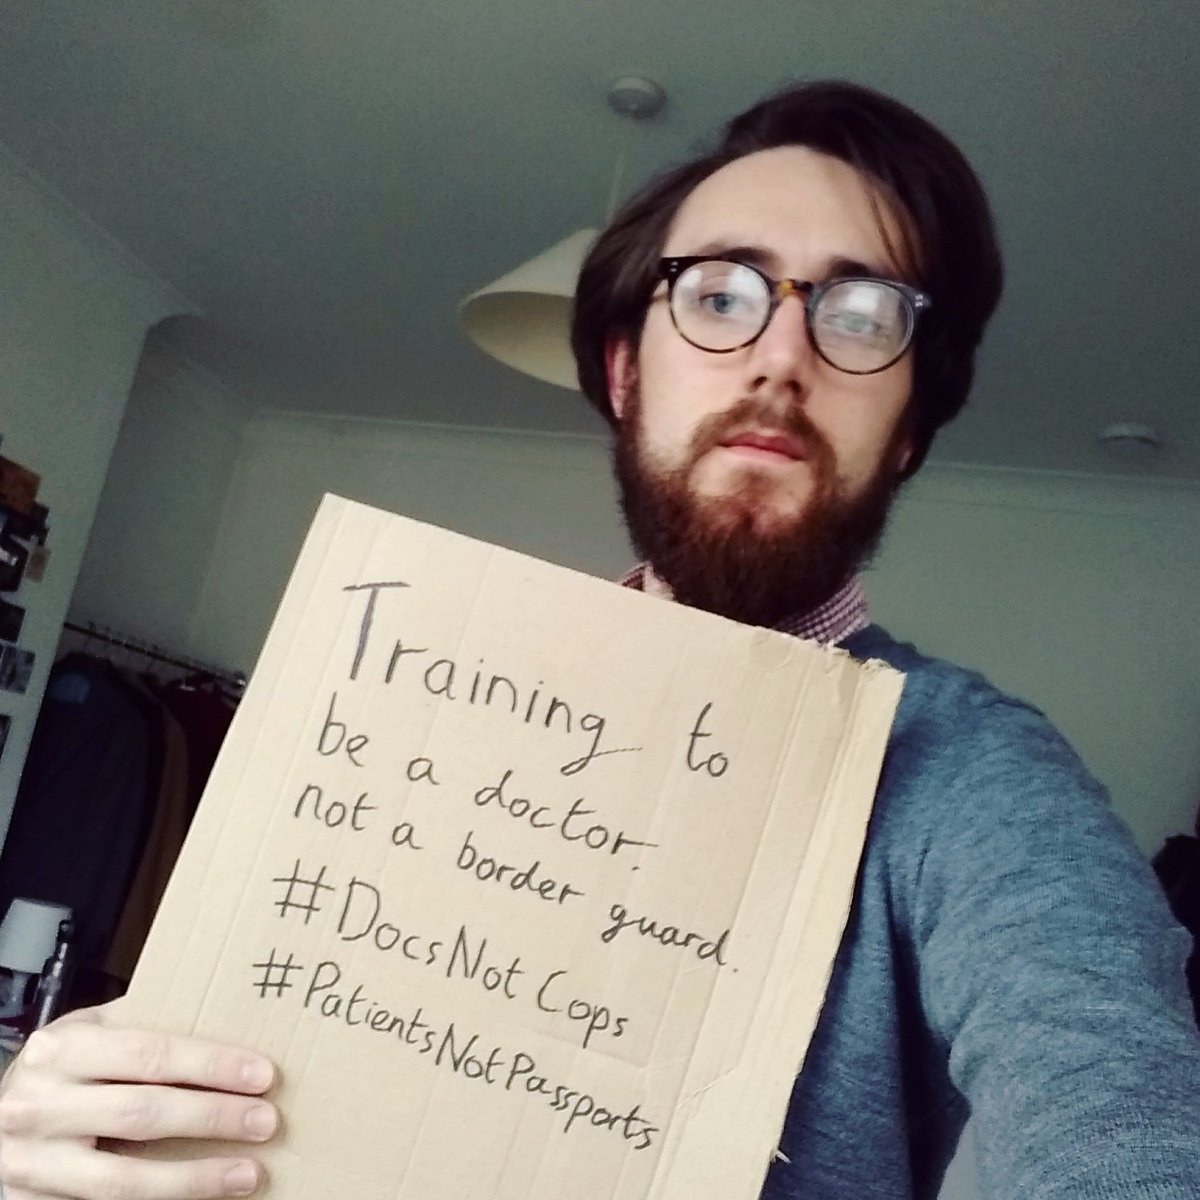 Training to
be a doctor.
not a border guard.
#DocsNotCops
#PatientsNotPassports